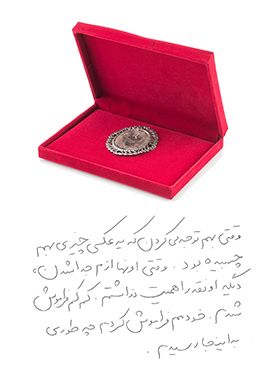 وقتی بهم توجه می‌کردن که یه عکسی چیزی بهم
چسبیده بود. وقتی اونها ازم جدا شدن،
دیگه اونقدر اهمیت نداشتم. کم کم فراموش
شدم. خودمم فراموش کردم چه طوری
به اینجا رسیدم.